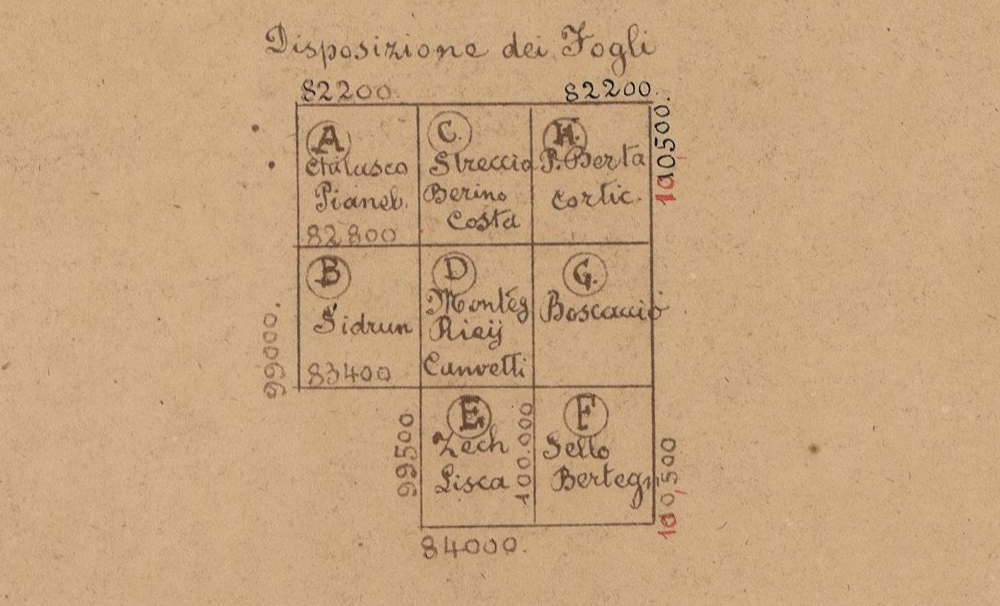 Disposizione dei Fogli
82200. 82200.
A
Pianel.
82800
C.
Streccio
Berino
Costa
H.
P. Berta
Cortic.
100500.
B
Sidrun
83400
99000.
D
Monteg
Rieij
Canvetti
G.
Boscaccio
E
Zech
Lisca
99500
100.000
F
Sello
Bertegn
100,500
84000.